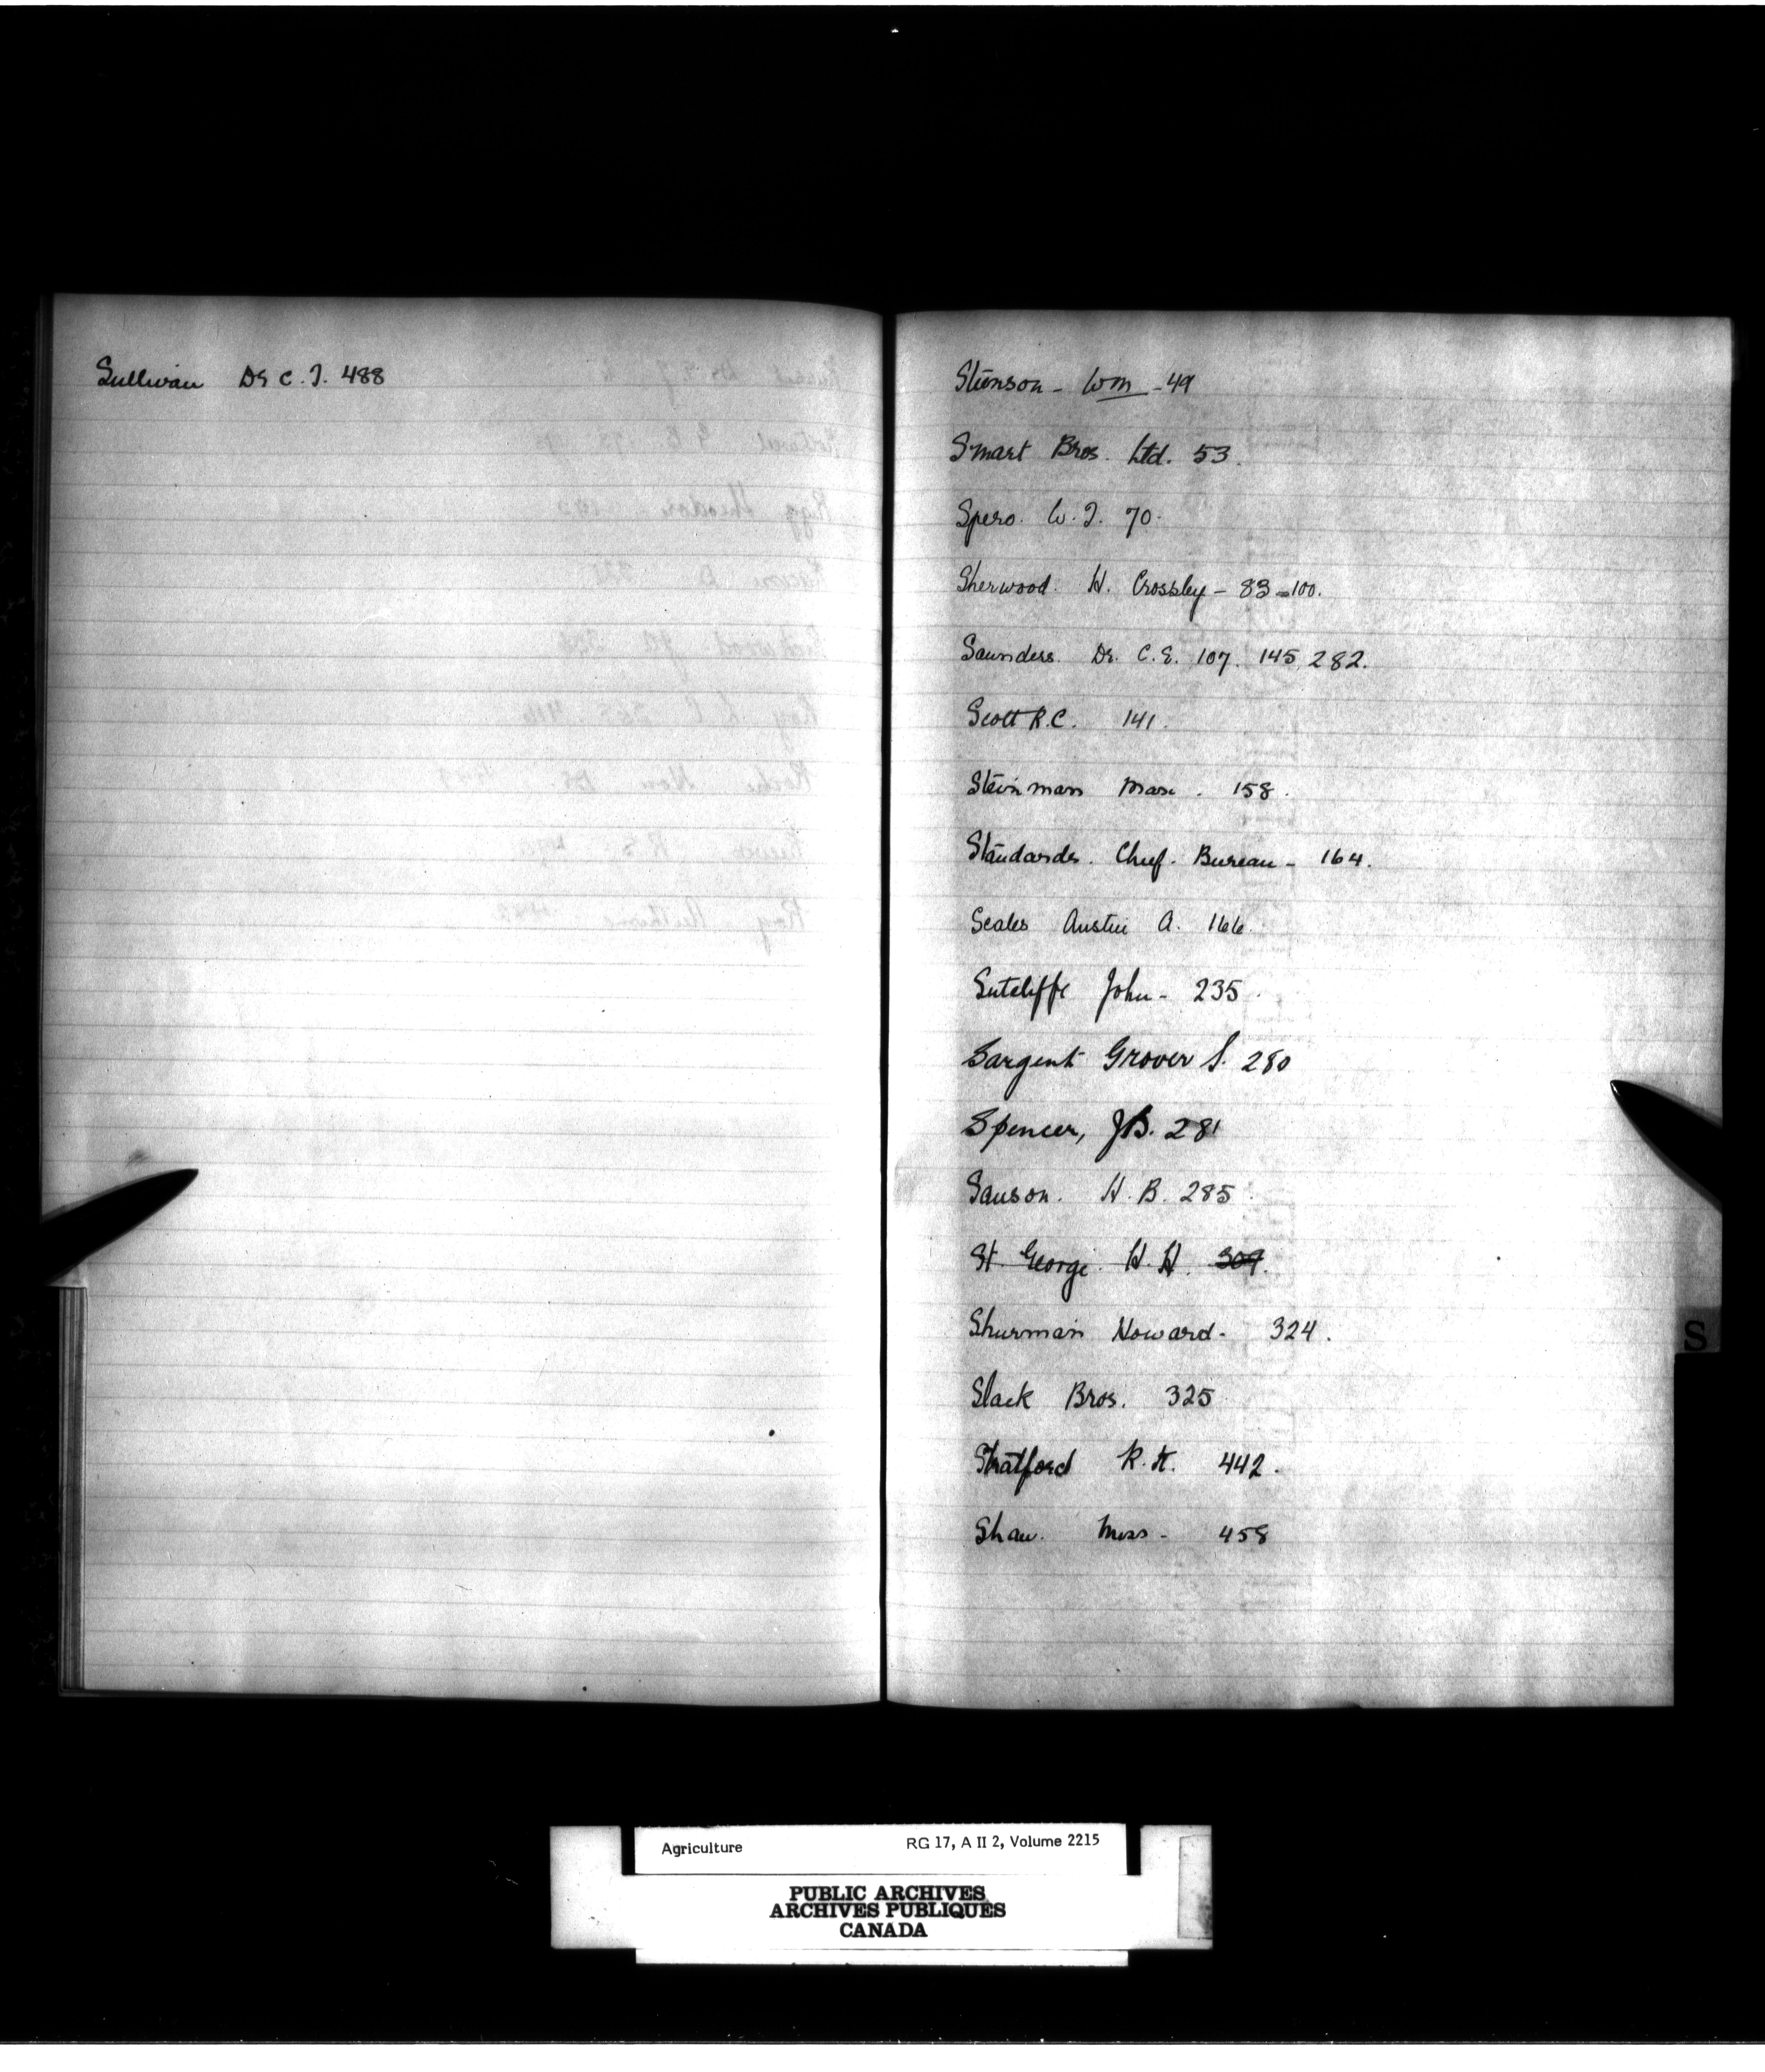 Sullivan Dr C. J. 488
Stenson - Wm - 49
Smart Bros. Ltd. 53.
Spero. W. J. 70.
Sherwood. H. Crossley - 83 - 100.
Saunders. Dr. C. E. 107. 145, 282.
Scott R.C. 141.
Steinman Max. 158.
Standards. Chief. Bureau - 164.
Scales Austin A. 166.
Sutcliffe John - 235.
Sargent Grover S. 280
Spencer, J.B. 281
Sanson. H. B. 285.
St. George. H. H. 309.
Shurman Howard - 324.
Slack Bros. 325
Stratford R. K. 442.
Shaw. Miss - 458
S
Agriculture RG 17, A II 2, Volume 2215
PUBLIC ARCHIVES
ARCHIVES PUBLIQUES
CANADA